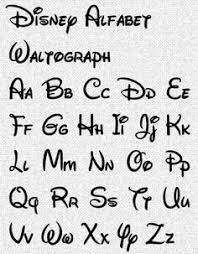 Disney Alfabet
Waltograph
Aa Bb Cc Dd Ee
Ff Gg Hh Ii Jj Kk
Ll Mm Nn Oo Pp
Qq Rr Ss Tt Uu
Vv Ww Xx Yy Zz